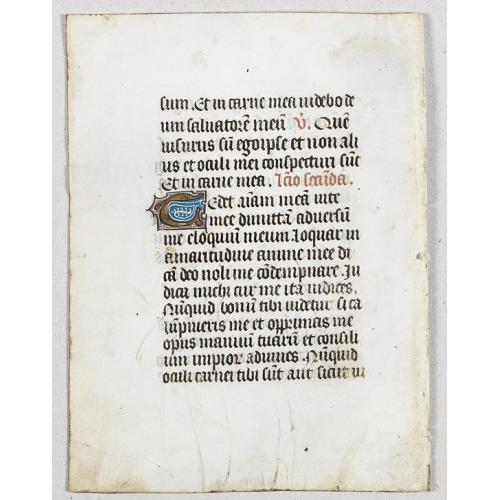 sum. Et in carne mea videbo de
um salvatorē meū ℣. Quē
visurus sū egoipse et non ali
us et oculi mei conspecturi sūt
Et in carne mea. Lcīo secūda.
Tedet aīam meā vite
mee dimittā adversū
me eloquiū meum. loquar in
amaritudine anime mee di
cā deo noli me cōdempnare. In
dica michi cur me ita iudices.
Nūquid bonū tibi videtur si ca
lūpnieris me et opprimas me
opus manuū tuarū et consili
um impior adiuves. Nūquid
oculi carnei tibi sūt aut sicut vi